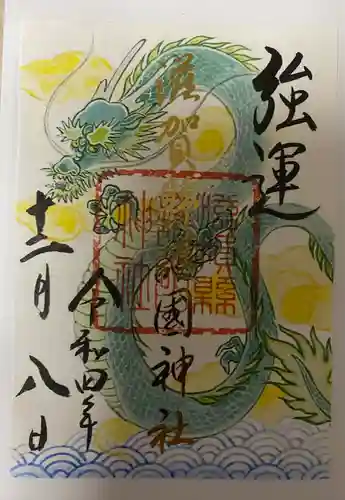 強運
滋賀縣護國神社
令和四年
十二月八日